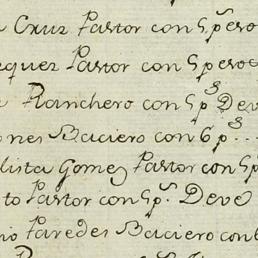 Cruz Pastor con 5 pesos
quez Pastor con 5 pesos
Ranchero con 5 ps Dev
ones Baciero con 6 ps
lista Gomez Pastor con 5 p
to Pastor con 5 ps Deve
io Paredes Baciero con 6